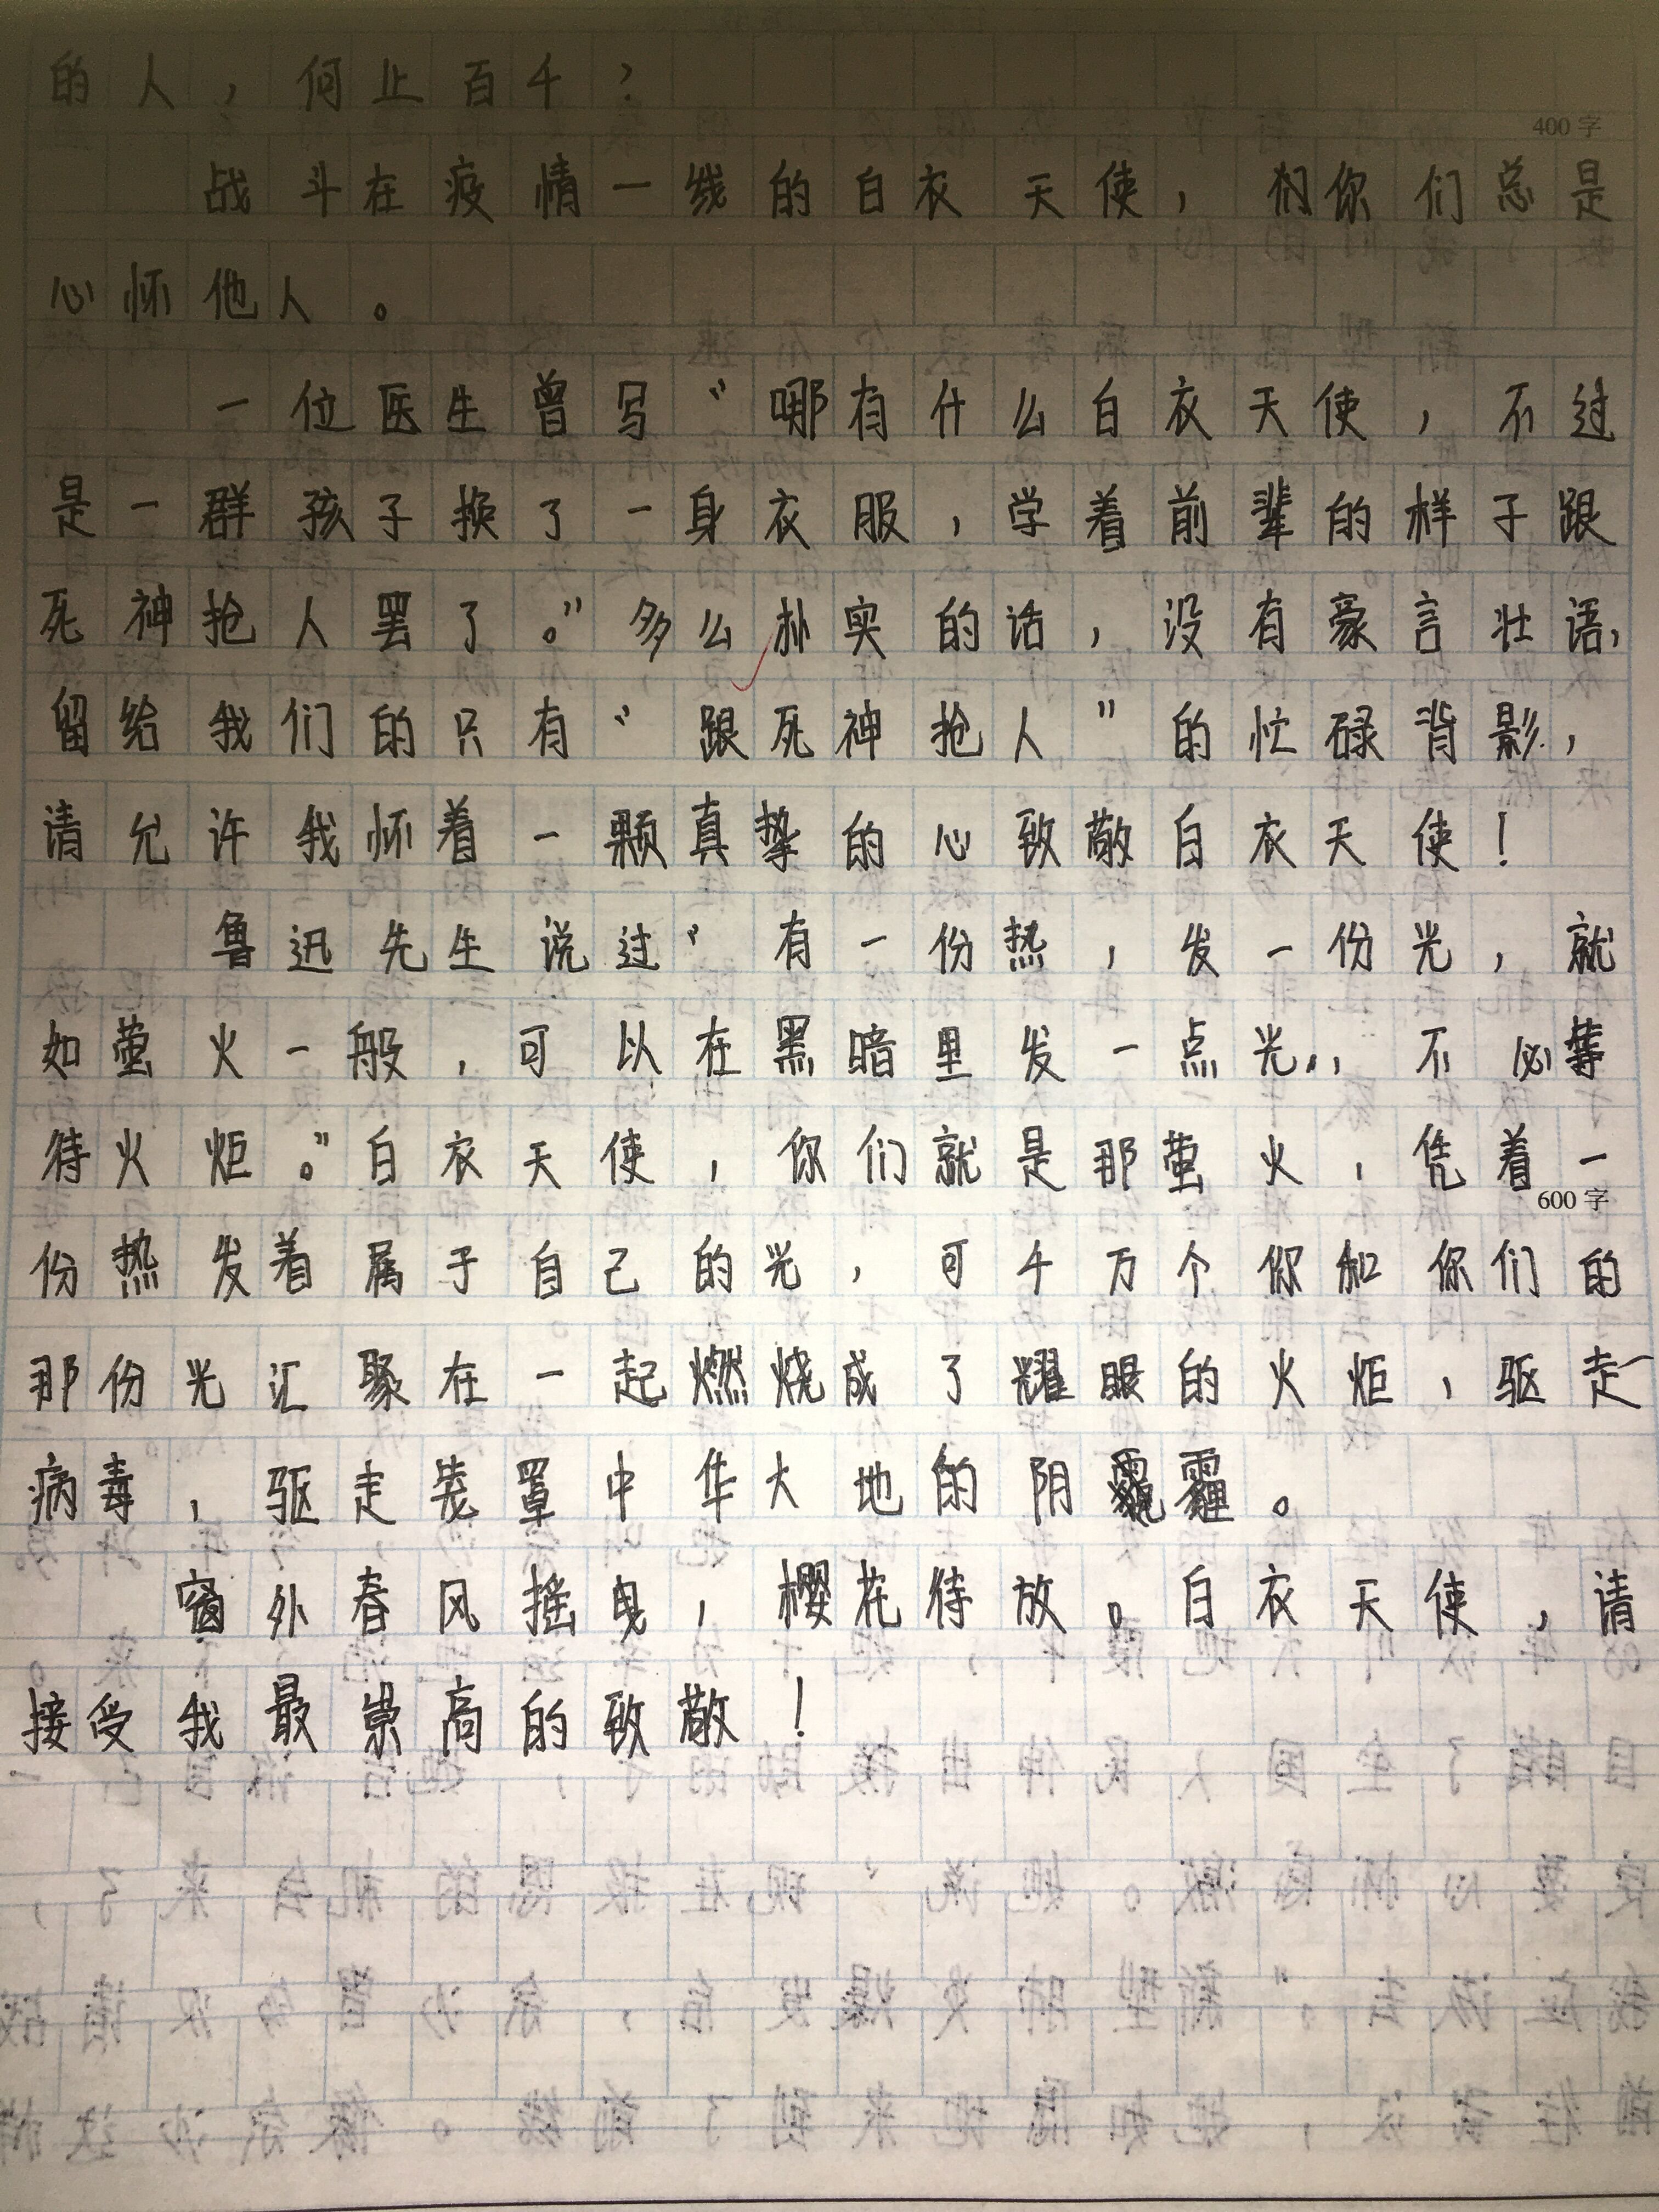 的人，何止百千？
400字
战斗在疫情一线的白衣天使，你们总是
心怀他人。
一位医生曾写“哪有什么白衣天使，不过
是一群孩子换了一身衣服，学着前辈的样子跟
死神抢人罢了。”多么朴实的话，没有豪言壮语，
留给我们的只有“跟死神抢人”的忙碌背影，
请允许我怀着一颗真挚的心致敬白衣天使！
鲁迅先生说过“有一份热，发一份光，就
如萤火一般，可以在黑暗里发一点光，不必等
待火炬。”白衣天使，你们就是那萤火，凭着一
600字
份热发着属于自己的光，可千万个你和你们的
那份光汇聚在一起燃烧成了耀眼的火炬，驱走
病毒，驱走笼罩中华大地的阴霾。
窗外春风摇曳，樱花待放。白衣天使，请
接受我最崇高的致敬！